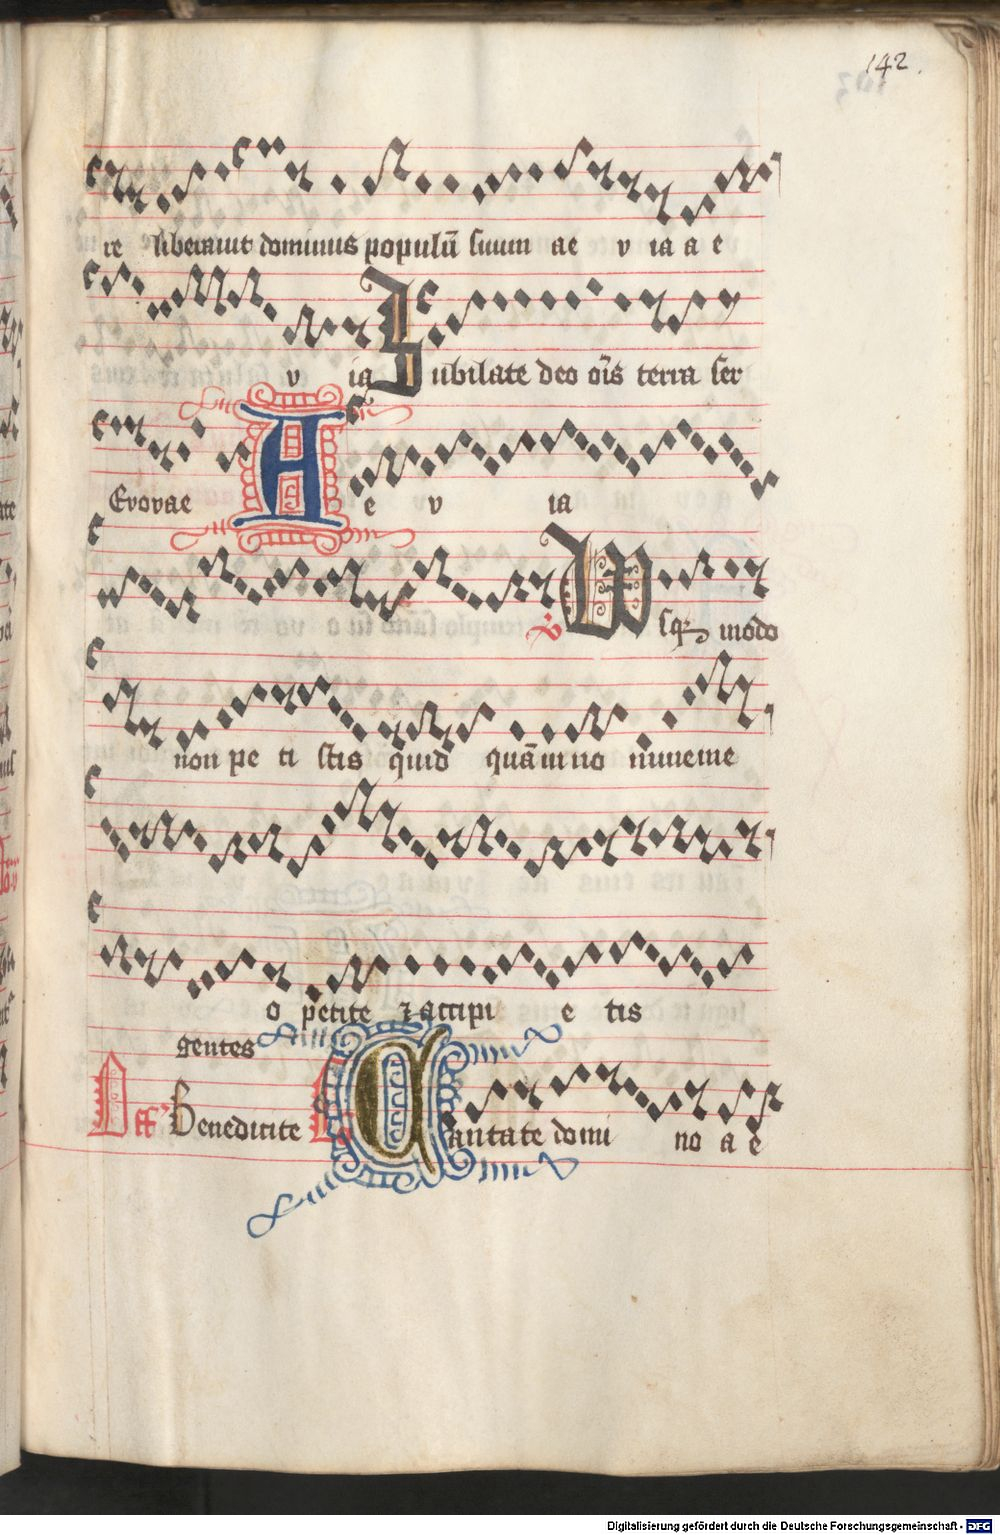 142.
re liberauit dominus populū suum ae v ia a e
v ia Jubilate deo oīs terra ser
Evovae A e v ia
Vsqz modo
non pe ti stis quid quā in no mine me
o petite z accipi e tis
gentes
Off Benedicite Co Cantate domi no a e
Digitalisierung gefördert durch die Deutsche Forschungsgemeinschaft - DFG